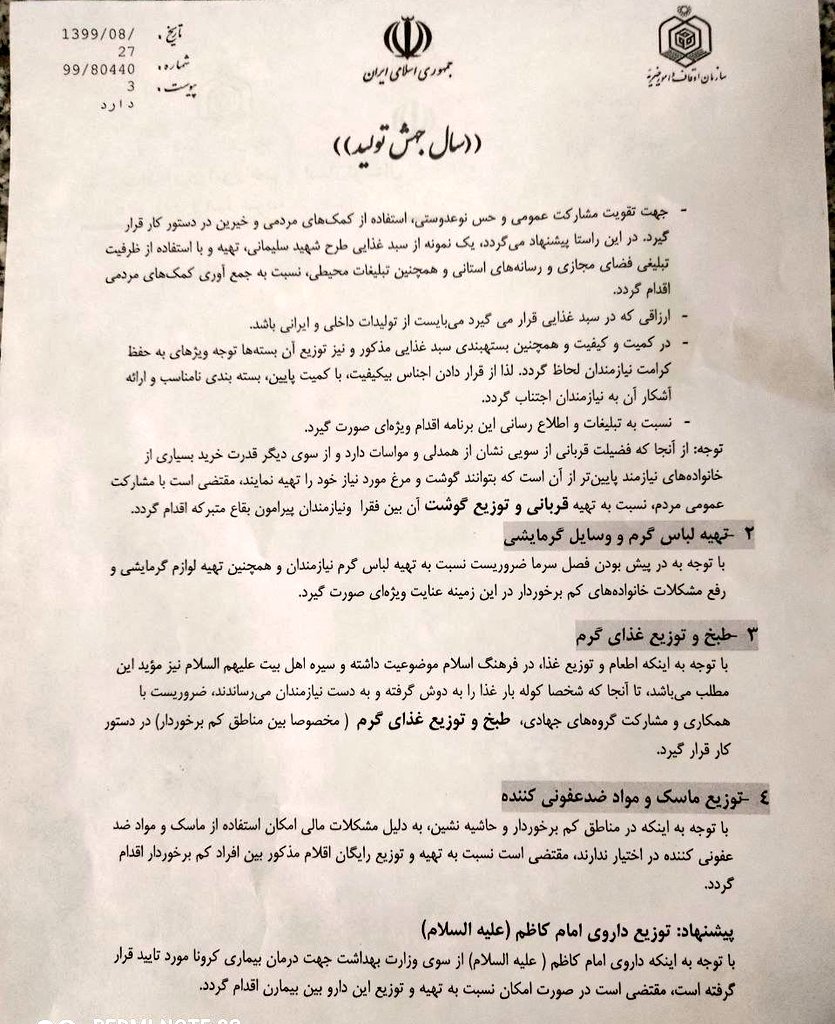 تاریخ : 1399/08/
27
شماره : 99/80440
3
پیوست : دارد
جمهوری اسلامی ایران
سازمان اوقاف و امور خیریه
((سال جهش تولید))
- جهت تقویت مشارکت عمومی و حس نوعدوستی، استفاده از کمک‌های مردمی و خیرین در دستور کار قرار
گیرد. در این راستا پیشنهاد می‌گردد، یک نمونه از سبد غذایی طرح شهید سلیمانی، تهیه و با استفاده از ظرفیت
تبلیغی فضای مجازی و رسانه‌های استانی و همچنین تبلیغات محیطی، نسبت به جمع آوری کمک‌های مردمی
اقدام گردد.
- ارزاقی که در سبد غذایی قرار می گیرد می‌بایست از تولیدات داخلی و ایرانی باشد.
- در کمیت و کیفیت و همچنین بستهبندی سبد غذایی مذکور و نیز توزیع آن بسته‌ها توجه ویژهای به حفظ
کرامت نیازمندان لحاظ گردد. لذا از قرار دادن اجناس بیکیفیت، با کمیت پایین، بسته بندی نامناسب و ارائه
آشکار آن به نیازمندان اجتناب گردد.
- نسبت به تبلیغات و اطلاع رسانی این برنامه اقدام ویژه‌ای صورت گیرد.
توجه: از آنجا که فضیلت قربانی از سویی نشان از همدلی و مواسات دارد و از سوی دیگر قدرت خرید بسیاری از
خانواده‌های نیازمند پایین‌تر از آن است که بتوانند گوشت و مرغ مورد نیاز خود را تهیه نمایند، مقتضی است با مشارکت
عمومی مردم، نسبت به تهیه قربانی و توزیع گوشت آن بین فقرا ونیازمندان پیرامون بقاع متبرکه اقدام گردد.
۲ -تهیه لباس گرم و وسایل گرمایشی
با توجه به در پیش بودن فصل سرما ضروریست نسبت به تهیه لباس گرم نیازمندان و همچنین تهیه لوازم گرمایشی و
رفع مشکلات خانواده‌های کم برخوردار در این زمینه عنایت ویژه‌ای صورت گیرد.
۳ -طبخ و توزیع غذای گرم
با توجه به اینکه اطعام و توزیع غذا، در فرهنگ اسلام موضوعیت داشته و سیره اهل بیت علیهم السلام نیز مؤید این
مطلب می‌باشد، تا آنجا که شخصا کوله بار غذا را به دوش گرفته و به دست نیازمندان می‌رساندند، ضروریست با
همکاری و مشارکت گروه‌های جهادی، طبخ و توزیع غذای گرم ( مخصوصا بین مناطق کم برخوردار) در دستور
کار قرار گیرد.
٤ -توزیع ماسک و مواد ضدعفونی کننده
با توجه به اینکه در مناطق کم برخوردار و حاشیه نشین، به دلیل مشکلات مالی امکان استفاده از ماسک و مواد ضد
عفونی کننده در اختیار ندارند، مقتضی است نسبت به تهیه و توزیع رایگان اقلام مذکور بین افراد کم برخوردار اقدام
گردد.
پیشنهاد: توزیع داروی امام کاظم (علیه السلام)
با توجه به اینکه داروی امام کاظم ( علیه السلام) از سوی وزارت بهداشت جهت درمان بیماری کرونا مورد تایید قرار
گرفته است، مقتضی است در صورت امکان نسبت به تهیه و توزیع این دارو بین بیمارن اقدام گردد.